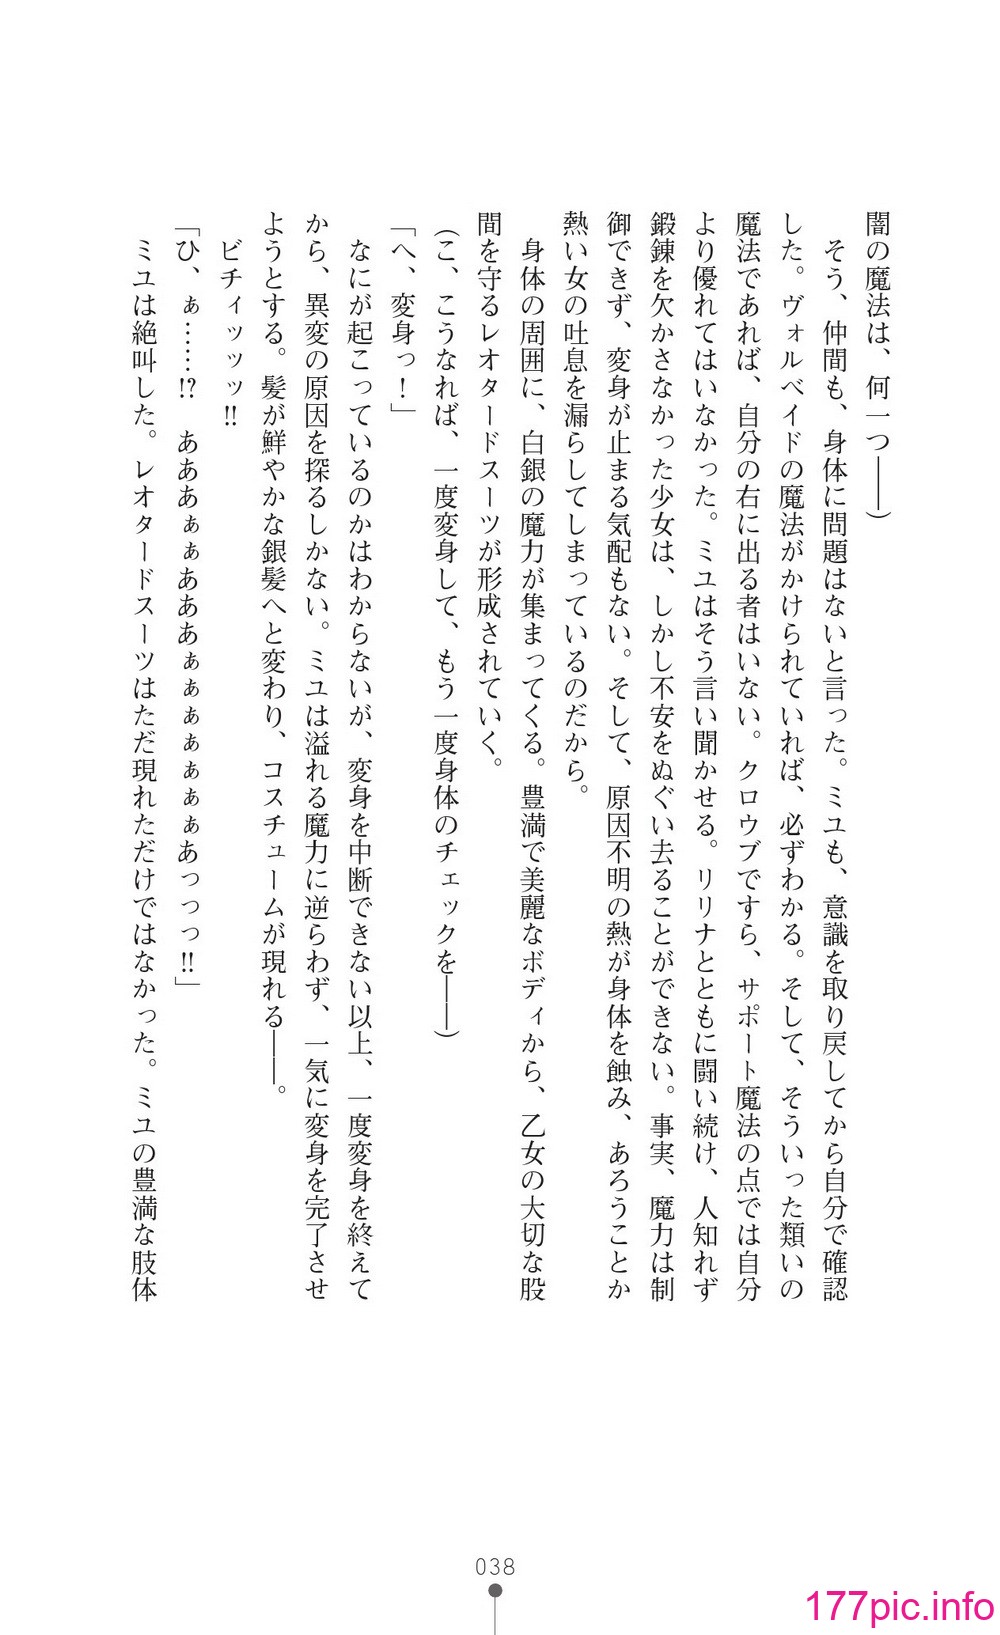 闇の魔法は、何一つ――)
そう、仲間も、身体に問題はないと言った。ミユも、意識を取り戻してから自分で確認
した。ヴォルベイドの魔法がかけられていれば、必ずわかる。そして、そういった類いの
魔法であれば、自分の右に出る者はいない。クロウブですら、サポート魔法の点では自分
より優れてはいなかった。ミユはそう言い聞かせる。リリナとともに闘い続け、人知れず
鍛錬を欠かさなかった少女は、しかし不安をぬぐい去ることができない。事実、魔力は制
御できず、変身が止まる気配もない。そして、原因不明の熱が身体を蝕み、あろうことか
熱い女の吐息を漏らしてしまっているのだから。
身体の周囲に、白銀の魔力が集まってくる。豊満で美麗なボディから、乙女の大切な股
間を守るレオタードスーツが形成されていく。
(こ、こうなれば、一度変身して、もう一度身体のチェックを――)
「へ、変身っ！」
なにが起こっているのかはわからないが、変身を中断できない以上、一度変身を終えて
から、異変の原因を探るしかない。ミユは溢れる魔力に逆らわず、一気に変身を完了させ
ようとする。髪が鮮やかな銀髪へと変わり、コスチュームが現れる――。
ビチィッッッ!!
「ひ、ぁ……!?　あああぁぁあああぁぁぁぁぁぁぁあっっっ!!」
ミユは絶叫した。レオタードスーツはただ現れただけではなかった。ミユの豊満な肢体
038
177pic.info